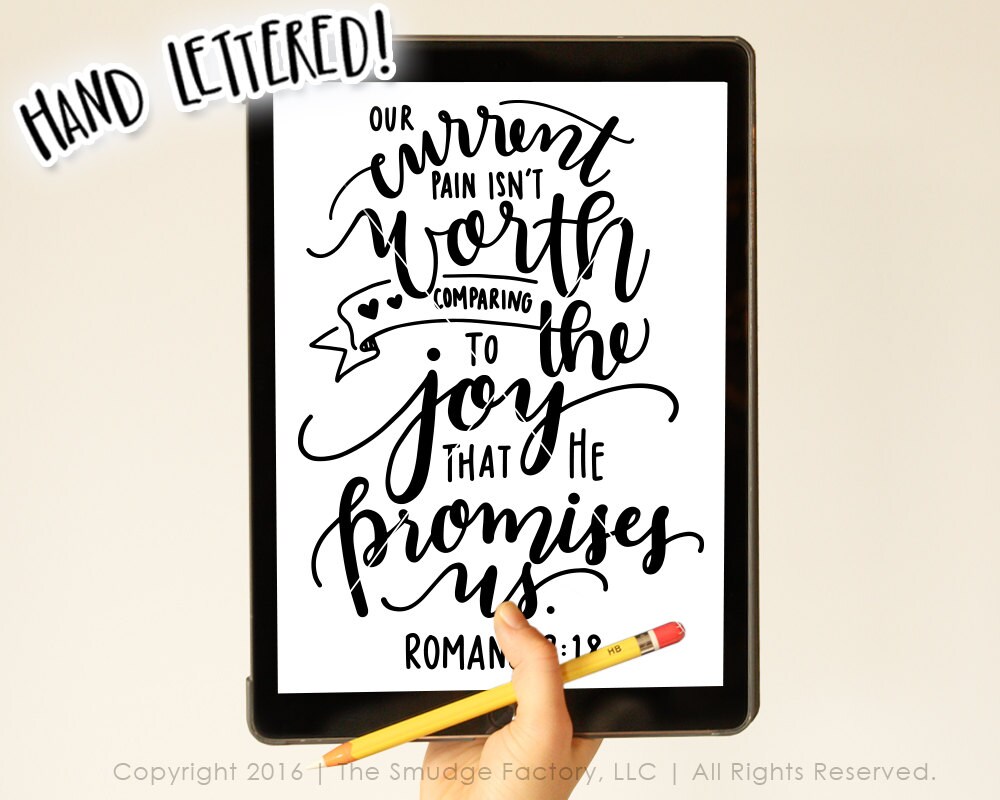 HAND LETTERED!
OUR
current
PAIN ISN'T
worth
COMPARING
TO the
joy
THAT HE
promises
us.
ROMANS 8:18
HB
Copyright 2016 | The Smudge Factory, LLC | All Rights Reserved.